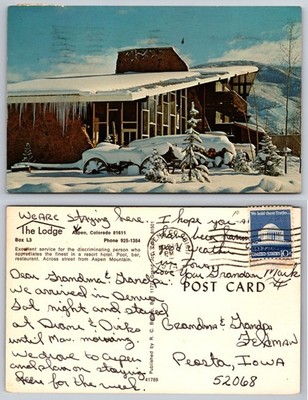 We are staying here.
The Lodge
Aspen, Colorado 81611
Box L3 Phone 925-1354
Excellent service for the discriminating person who
appreciates the finest in a resort hotel. Pool, bar,
restaurant. Across street from Aspen Mountain.
Dear Grandma & Grandpa
We arrived in Denver
Sat night and stayed
at Duane &
until Mon. morning.
We drove to Aspen
and plan on staying
here for the week.
I hope you
have been
Your Grandson Mark
Published by R. C.
41789
POST CARD
10c
Grandma & Grandpa
Peosta, Iowa
52068